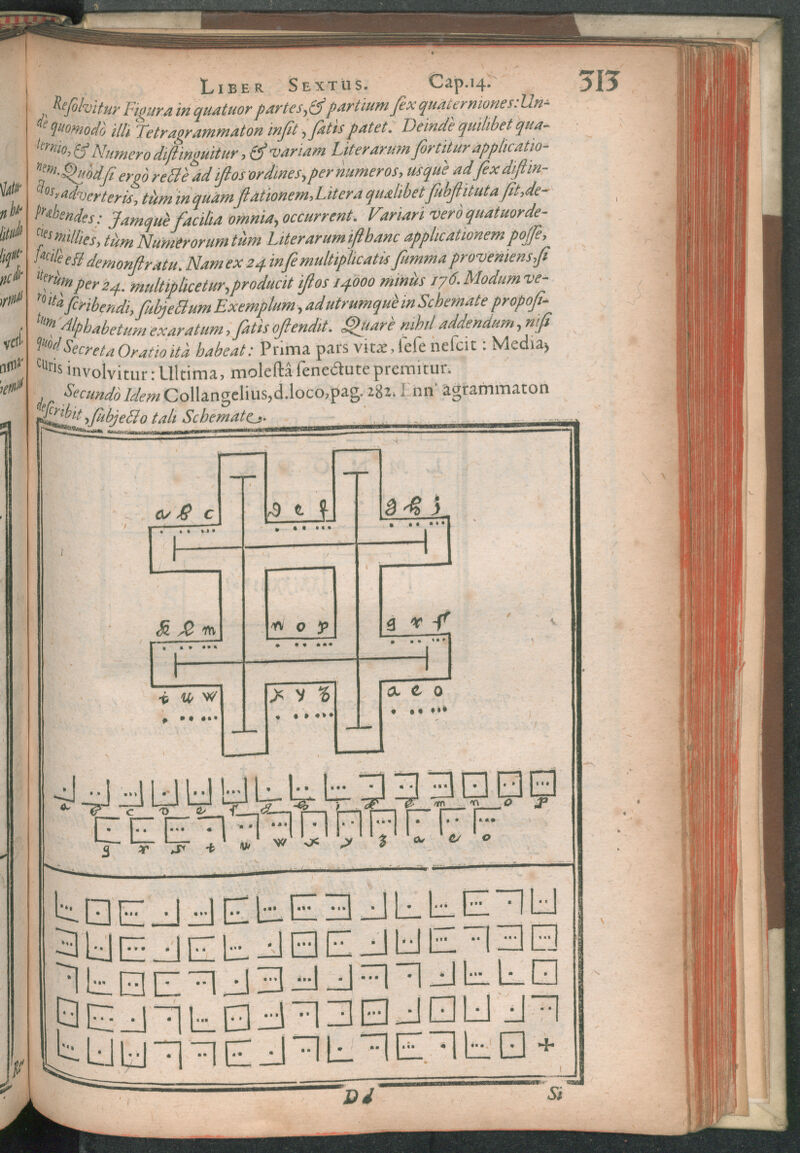 LIBER SEXTUS. Cap.14. 313
Resolvitur Figura in quatuor partes, & partium sex quaterniones: Un-
de quomodò illi Tetragrammaton insit, satis patet. Deindè quilibet qua-
ternio, & Numero distinguitur, & variam Literarum sortitur applicatio-
nem. Quòd si ergò rectè ad istos ordines, per numeros, usquè ad sex distin-
ctos, adverteris, tùm in quàm stationem, Litera quælibet substituta sit, de-
præhendes: Jamquè facilia omnia, occurrent. Variari verò quatuorde-
cies millies, tùm Numerorum tùm Literarum ist hanc applicationem posse,
facilè est demonstratu. Nam ex 24 in se multiplicatis summa proveniens, si
iterùm per 24. multiplicetur, producit istos 14000 minùs 176. Modum ve-
rò ità scribendi, subjectum Exemplum, ad utrumquè in Schemate proposi-
tum Alphabetum exaratum, satis ostendit. Quarè nihil addendum, nisi
quòd Secreta Oratio ità habeat: Prima pars vitæ, sese nescit: Media,
curis involvitur: Ultima, molestâ senectute premitur.
Secundò Idem Collangelius, d. loco, pag. 282. agrammaton
describit, subjecto tali Schemate.
a b c d e f g h j
k l m n o p q r s
t u w x y z a e o
a b c d e f g h i k l m n o p
q r s t u w x y z a e o
Dd Si